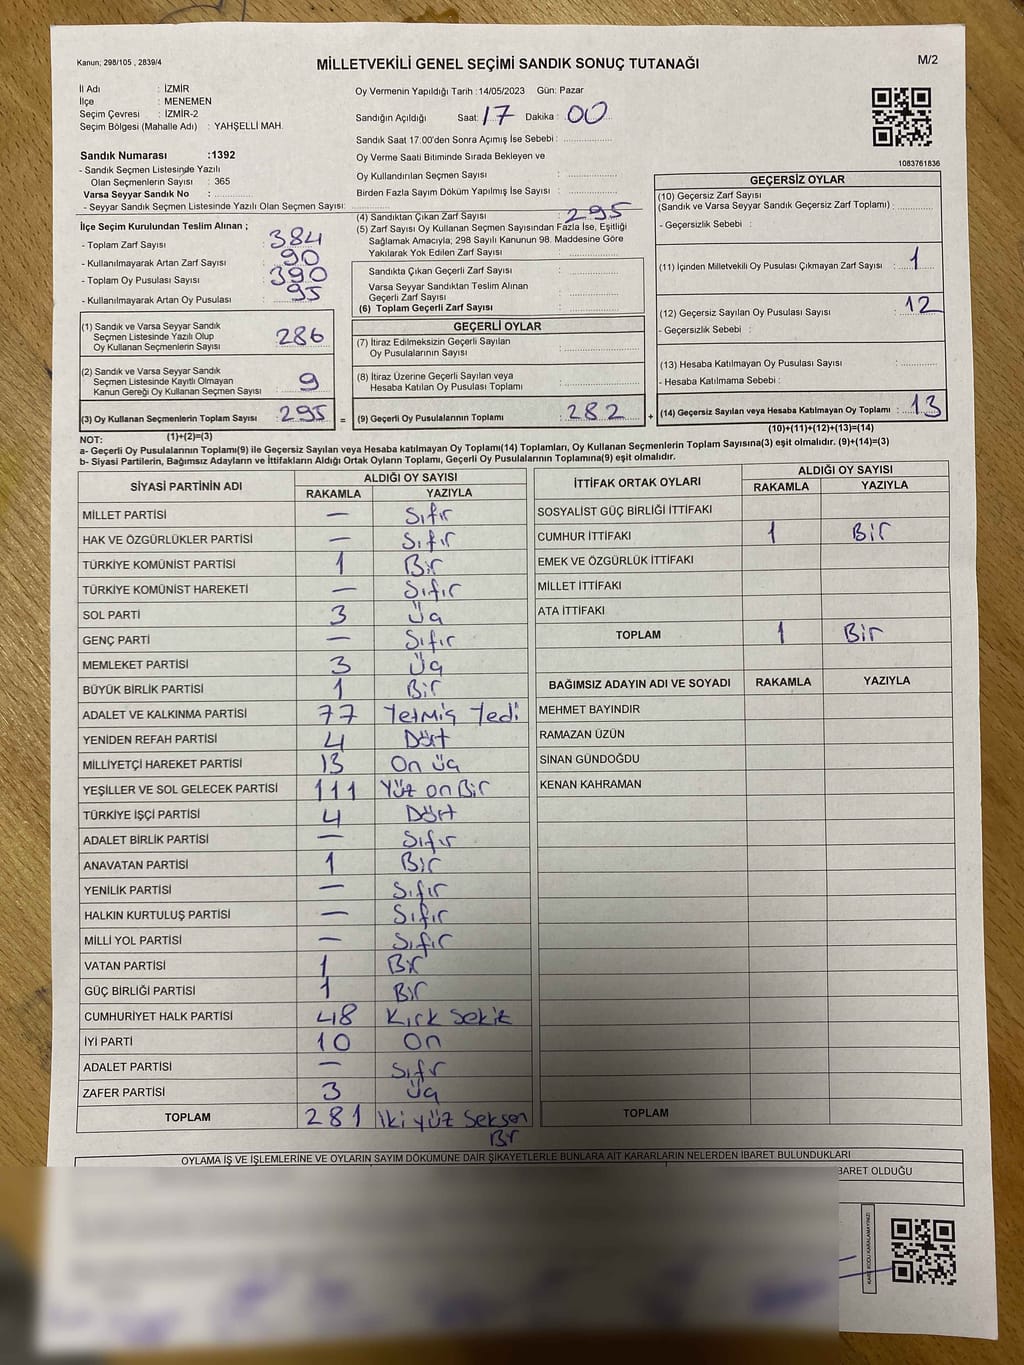 Kanun; 298/105 , 2839/4
MİLLETVEKİLİ GENEL SEÇİMİ SANDIK SONUÇ TUTANAĞI
M/2
İl Adı : İZMİR
İlçe : MENEMEN
Seçim Çevresi : İZMİR-2
Seçim Bölgesi (Mahalle Adı) : YAHŞELLİ MAH.
Sandık Numarası :1392
- Sandık Seçmen Listesinde Yazılı
Olan Seçmenlerin Sayısı : 365
Varsa Seyyar Sandık No :
- Seyyar Sandık Seçmen Listesinde Yazılı Olan Seçmen Sayısı:
Oy Vermenin Yapıldığı Tarih :14/05/2023 Gün: Pazar
Sandığın Açıldığı Saat: 17 Dakika : 00
Sandık Saat 17.00'den Sonra Açımış İse Sebebi :
Oy Verme Saati Bitiminde Sırada Bekleyen ve
Oy Kullandırılan Seçmen Sayısı :
Birden Fazla Sayım Döküm Yapılmış İse Sayısı :
1083761836
İlçe Seçim Kurulundan Teslim Alınan ;
- Toplam Zarf Sayısı : 384
- Kullanılmayarak Artan Zarf Sayısı : 90
- Toplam Oy Pusulası Sayısı : 390
- Kullanılmayarak Artan Oy Pusulası : 95
(1) Sandık ve Varsa Seyyar Sandık
Seçmen Listesinde Yazılı Olup
Oy Kullanan Seçmenlerin Sayısı : 286
(2) Sandık ve Varsa Seyyar Sandık
Seçmen Listesinde Kayıtlı Olmayan
Kanun Gereği Oy Kullanan Seçmen Sayısı : 9
(3) Oy Kullanan Seçmenlerin Toplam Sayısı : 295 =
(1)+(2)=(3)
(4) Sandıktan Çıkan Zarf Sayısı : 295
(5) Zarf Sayısı Oy Kullanan Seçmen Sayısından Fazla İse, Eşitliği
Sağlamak Amacıyla, 298 Sayılı Kanunun 98. Maddesine Göre
Yakılarak Yok Edilen Zarf Sayısı :
Sandıkta Çıkan Geçerli Zarf Sayısı :
Varsa Seyyar Sandıktan Teslim Alınan
Geçerli Zarf Sayısı :
(6) Toplam Geçerli Zarf Sayısı :
GEÇERLİ OYLAR
(7) İtiraz Edilmeksizin Geçerli Sayılan
Oy Pusulalarının Sayısı :
(8) İtiraz Üzerine Geçerli Sayılan veya
Hesaba Katılan Oy Pusulası Toplamı :
(9) Geçerli Oy Pusulalarının Toplamı : 282 +
GEÇERSİZ OYLAR
(10) Geçersiz Zarf Sayısı
(Sandık ve Varsa Seyyar Sandık Geçersiz Zarf Toplamı) :
- Geçersizlik Sebebi :
(11) İçinden Milletvekili Oy Pusulası Çıkmayan Zarf Sayısı : 1
(12) Geçersiz Sayılan Oy Pusulası Sayısı : 12
- Geçersizlik Sebebi :
(13) Hesaba Katılmayan Oy Pusulası Sayısı :
- Hesaba Katılmama Sebebi :
(14) Geçersiz Sayılan veya Hesaba Katılmayan Oy Toplamı : 13
(10)+(11)+(12)+(13)=(14)
NOT:
a- Geçerli Oy Pusulalarının Toplamı(9) ile Geçersiz Sayılan veya Hesaba katılmayan Oy Toplamı(14) Toplamları, Oy Kullanan Seçmenlerin Toplam Sayısına(3) eşit olmalıdır. (9)+(14)=(3)
b- Siyasi Partilerin, Bağımsız Adayların ve İttifakların Aldığı Ortak Oyların Toplamı, Geçerli Oy Pusulalarının Toplamına(9) eşit olmalıdır.
SİYASİ PARTİNİN ADI ALDIĞI OY SAYISI
RAKAMLA YAZIYLA
MİLLET PARTİSİ — Sıfır
HAK VE ÖZGÜRLÜKLER PARTİSİ — Sıfır
TÜRKİYE KOMÜNİST PARTİSİ 1 Bir
TÜRKİYE KOMÜNİST HAREKETİ — Sıfır
SOL PARTİ 3 Üç
GENÇ PARTİ — Sıfır
MEMLEKET PARTİSİ 3 Üç
BÜYÜK BİRLİK PARTİSİ 1 Bir
ADALET VE KALKINMA PARTİSİ 77 Yetmiş Yedi
YENİDEN REFAH PARTİSİ 4 Dört
MİLLİYETÇİ HAREKET PARTİSİ 13 On üç
YEŞİLLER VE SOL GELECEK PARTİSİ 111 Yüz on Bir
TÜRKİYE İŞÇİ PARTİSİ 4 Dört
ADALET BİRLİK PARTİSİ — Sıfır
ANAVATAN PARTİSİ 1 Bir
YENİLİK PARTİSİ — Sıfır
HALKIN KURTULUŞ PARTİSİ — Sıfır
MİLLİ YOL PARTİSİ — Sıfır
VATAN PARTİSİ 1 Bir
GÜÇ BİRLİĞİ PARTİSİ 1 Bir
CUMHURİYET HALK PARTİSİ 48 Kırk Sekiz
İYİ PARTİ 10 On
ADALET PARTİSİ — Sıfır
ZAFER PARTİSİ 3 Üç
TOPLAM 281 İki yüz Seksen
Bir
İTTİFAK ORTAK OYLARI ALDIĞI OY SAYISI
RAKAMLA YAZIYLA
SOSYALİST GÜÇ BİRLİĞİ İTTİFAKI
CUMHUR İTTİFAKI 1 Bir
EMEK VE ÖZGÜRLÜK İTTİFAKI
MİLLET İTTİFAKI
ATA İTTİFAKI
TOPLAM 1 Bir
BAĞIMSIZ ADAYIN ADI VE SOYADI RAKAMLA YAZIYLA
MEHMET BAYINDIR
RAMAZAN ÜZÜN
SİNAN GÜNDOĞDU
KENAN KAHRAMAN
TOPLAM
OYLAMA İŞ VE İŞLEMLERİNE VE OYLARIN SAYIM DÖKÜMÜNE DAİR ŞİKAYETLERLE BUNLARA AİT KARARLARIN NELERDEN İBARET BULUNDUKLARI
BARET OLDUĞU
KARE KODU KARALAMAYINIZ!